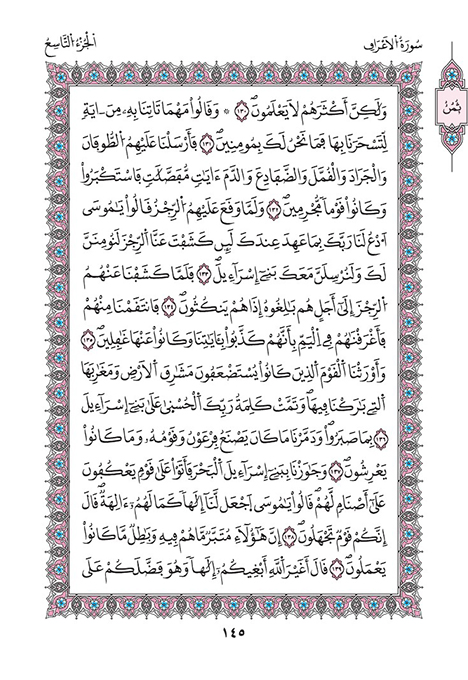 سُورَةُ الْأَعْرَافِ
الْجُزْءُ التَّاسِعُ
ثُمُنُ
وَلَٰكِنَّ أَكْثَرَهُمْ لَا يَعْلَمُونَ ١٣٠ * وَقَالُوا۟ مَهْمَا تَاتِنَا بِهِۦ مِنَ ـايَةٍ
لِّتَسْحَرَنَا بِهَا فَمَا نَحْنُ لَكَ بِمُومِنِينَ ١٣١ فَأَرْسَلْنَا عَلَيْهِمُ الطُّوفَانَ
وَالْجَرَادَ وَالْقُمَّلَ وَالضَّفَادِعَ وَالدَّمَ ءَايَٰتٖ مُّفَصَّلَٰتٖ فَاسْتَكْبَرُوا۟
وَكَانُوا۟ قَوْمًا مُّجْرِمِينَ ١٣٢ وَلَمَّا وَقَعَ عَلَيْهِمُ الرِّجْزُ قَالُوا۟ يَٰمُوسَى
اَدْعُ لَنَا رَبَّكَ بِمَا عَهِدَ عِندَكَ لَئِن كَشَفْتَ عَنَّا الرِّجْزَ لَنُومِنَنَّ
لَكَ وَلَنُرْسِلَنَّ مَعَكَ بَنِےٓ إِسْرَآءِيلَ ١٣٣ فَلَمَّا كَشَفْنَا عَنْهُمُ
الرِّجْزَ إِلَىٰٓ أَجَلٍ هُم بَٰلِغُوهُ إِذَا هُمْ يَنكُثُونَ ١٣٤ فَانتَقَمْنَا مِنْهُمْ
فَأَغْرَقْنَٰهُمْ فِے الْيَمِّ بِأَنَّهُمْ كَذَّبُوا۟ بِـَٔايَٰتِنَا وَكَانُوا۟ عَنْهَا غَٰفِلِينَ ١٣٥
وَأَوْرَثْنَا الْقَوْمَ الَّذِينَ كَانُوا۟ يُسْتَضْعَفُونَ مَشَٰرِقَ الْأَرْضِ وَمَغَٰرِبَهَا
الَّتِے بَٰرَكْنَا فِيهَا وَتَمَّتْ كَلِمَةُ رَبِّكَ الْحُسْنَىٰ عَلَىٰ بَنِےٓ إِسْرَآءِيلَ
بِمَا صَبَرُوا۟ وَدَمَّرْنَا مَا كَانَ يَصْنَعُ فِرْعَوْنُ وَقَوْمُهُۥ وَمَا كَانُوا۟
يَعْرِشُونَ ١٣٦ وَجَٰوَزْنَا بِبَنِےٓ إِسْرَآءِيلَ الْبَحْرَ فَأَتَوْا۟ عَلَىٰ قَوْمٍ يَعْكُفُونَ
عَلَىٰٓ أَصْنَامٍ لَّهُمْ قَالُوا۟ يَٰمُوسَى اَجْعَل لَّنَآ إِلَٰهًا كَمَا لَهُمُۥٓ ءَالِهَةٌ قَالَ
إِنَّكُمْ قَوْمٌ تَجْهَلُونَ ١٣٨ إِنَّ هَٰٓؤُلَآءِ مُتَبَّرٌ مَّا هُمْ فِيهِ وَبَٰطِلٌ مَّا كَانُوا۟
يَعْمَلُونَ ١٣٩ قَالَ أَغَيْرَ اللَّهِ أَبْغِيكُمُۥٓ إِلَٰهًا وَهُوَ فَضَّلَكُمْ عَلَى
١٤٥